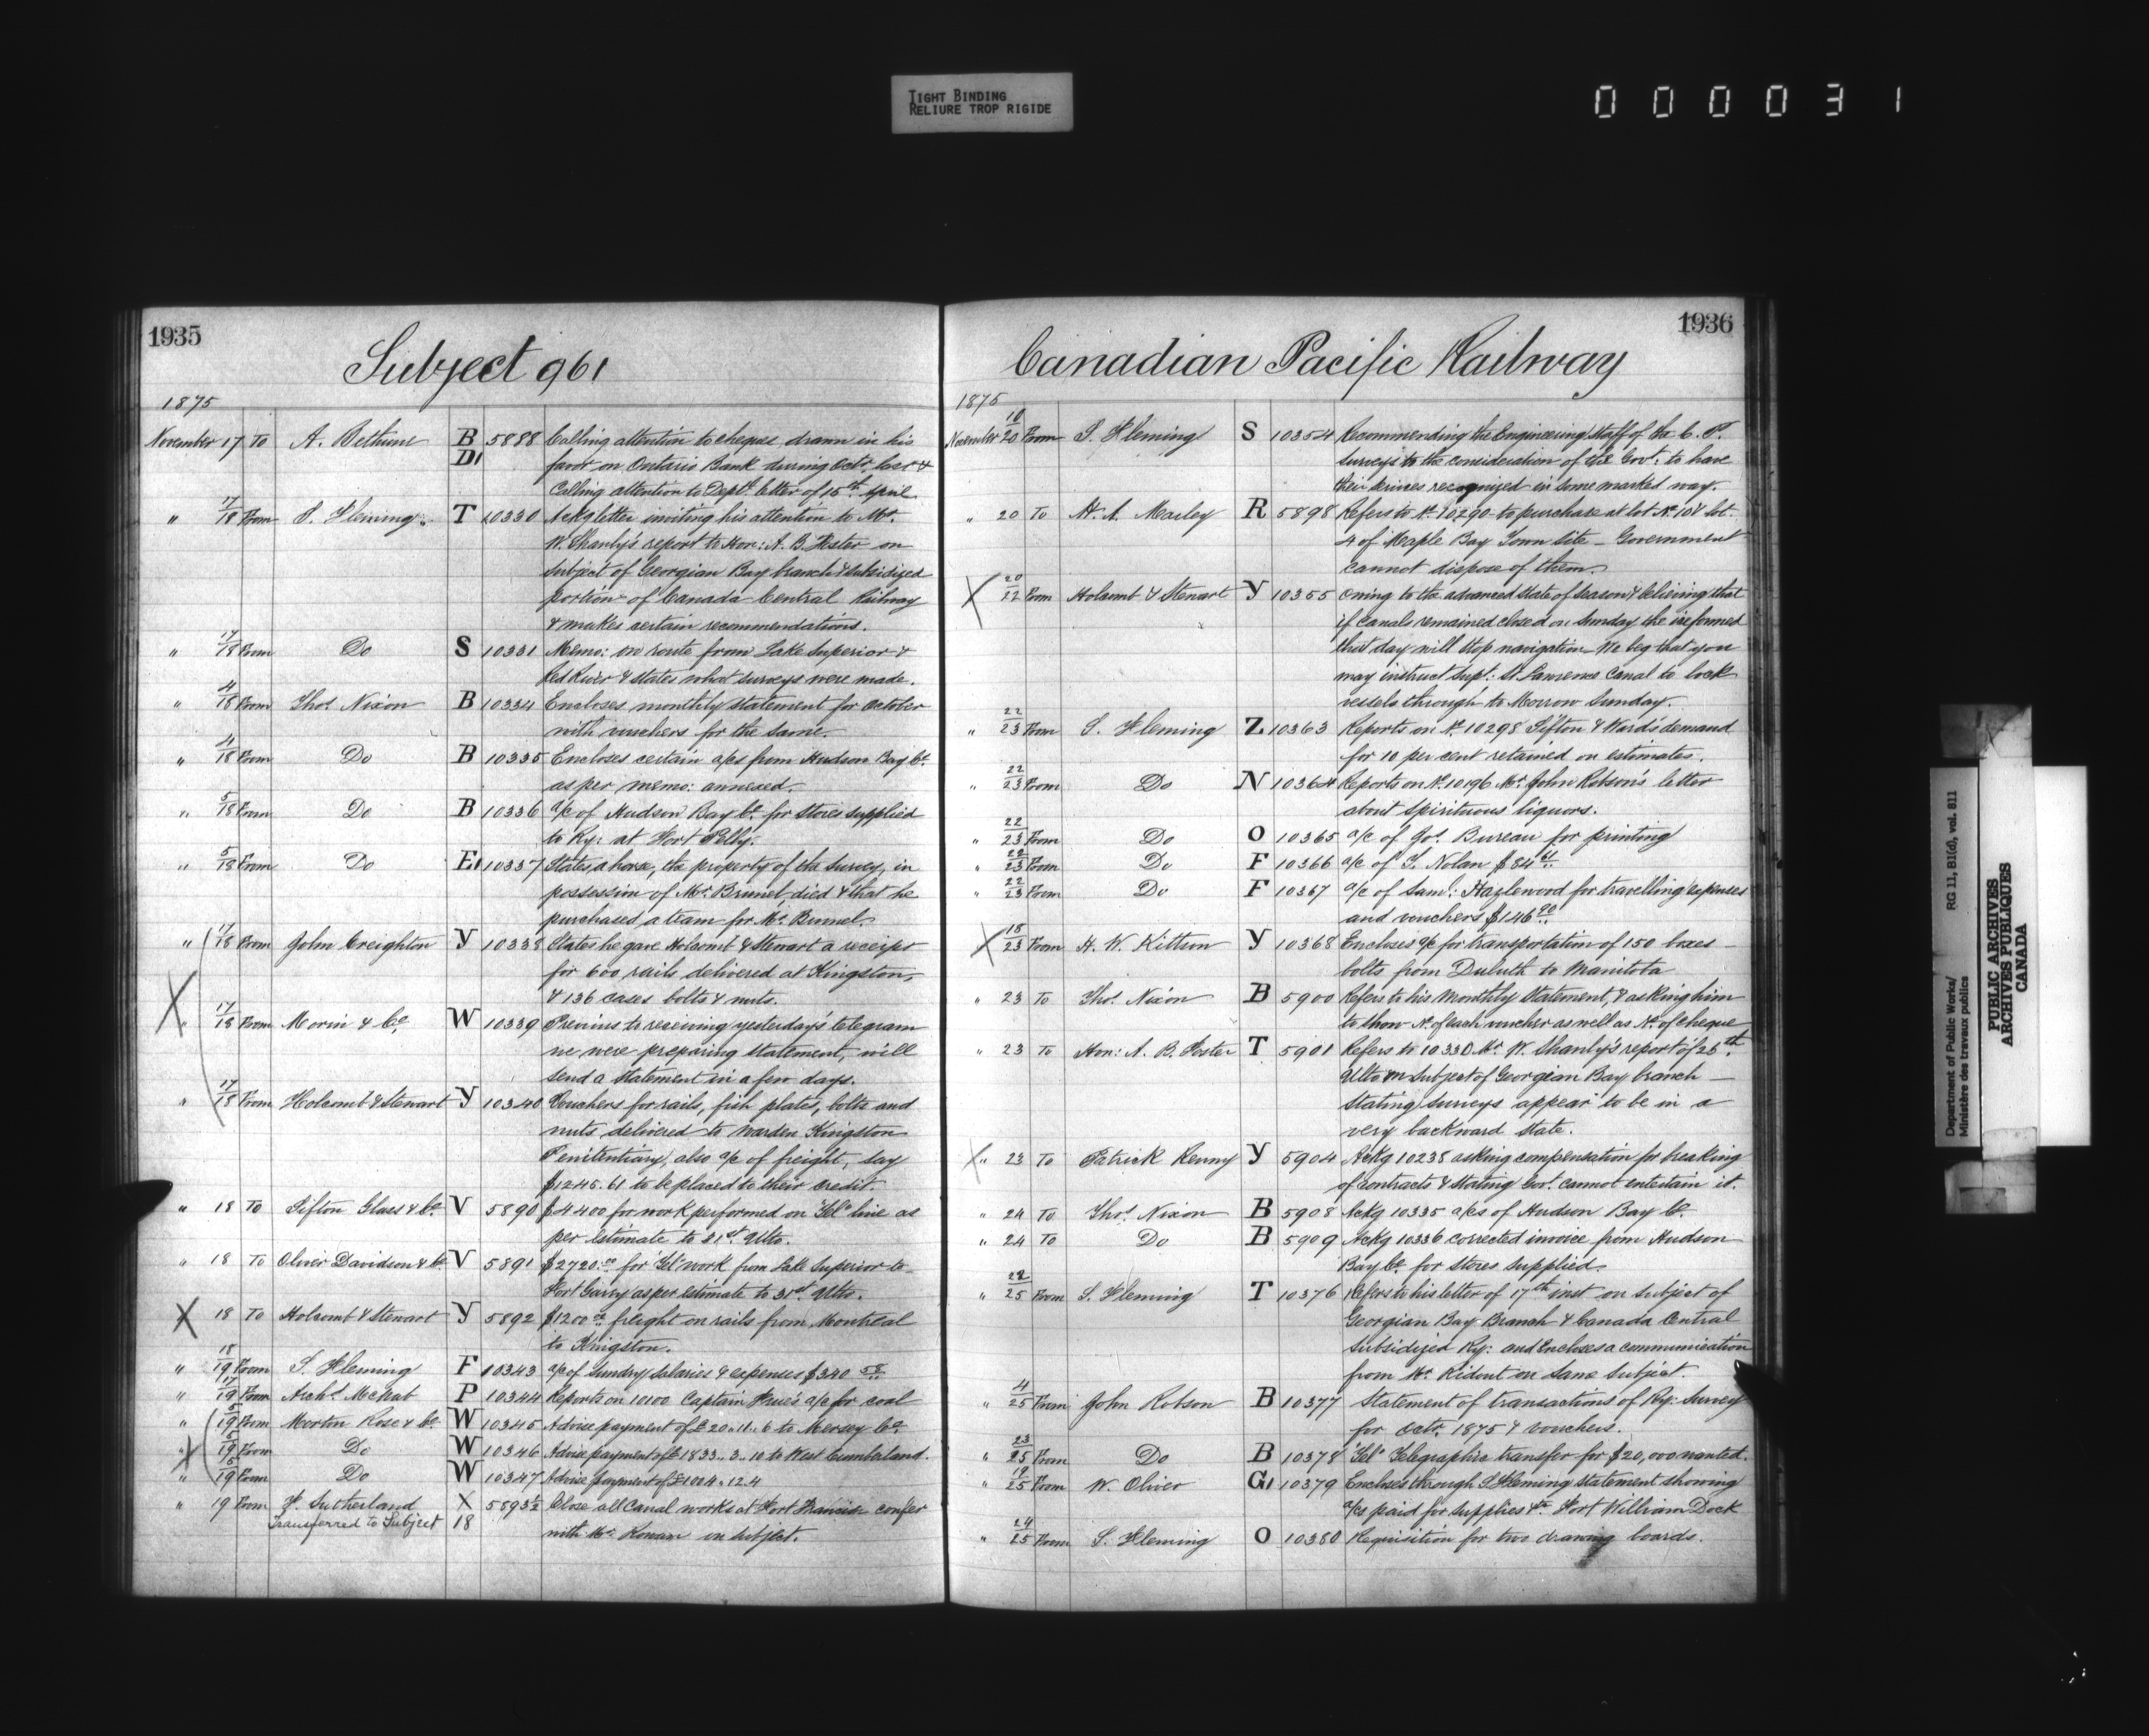 TIGHT BINDING
RELIURE TROP RIGIDE
0 0 0 0 3 1
1935
Subject 961
1875
November 17 To A. Bethune B D1 5888 Calling attention to cheques drawn in his
favor on Ontario Bank during Octr. last &
Calling attention to Dept. letter of 15th April
" 17/18 From S. Fleming T 10330 Ackg letter inviting his attention to Mr.
W. Shanly's report to Hon: A. B. Foster on
subject of Georgian Bay branch & subsidized
portion of Canada Central Railway
& makes certain recommendations.
" 17/18 From Do S 10331 Memo: on route from Lake Superior &
Red River & states what surveys were made.
" 4/18 From Thos. Nixon B 10334 Encloses monthly statement for October
with vouchers for the same.
" 4/18 From Do B 10335 Encloses certain a/cs from Hudson Bay Co.
as per memo: annexed.
" 5/18 From Do B 10336 a/c of Hudson Bay Co. for stores supplied
to Ry: at Fort Pelly.
" 5/18 From Do E1 10337 States a horse, the property of the survey, in
possession of Mr. Brunel, died & that he
purchased a team for Mr. Brunel.
" 17/18 From John Creighton Y 10338 States he gave Holcomb & Stewart a receipt
for 600 rails delivered at Kingston,
& 136 cases bolts & nuts.
X " 17/18 From Morin & Co. W 10339 Previous to receiving yesterday's telegram
we were preparing statement, will
send a statement in a few days.
" 17/18 From Holcomb & Stewart Y 10340 Vouchers for rails, fish plates, bolts and
nuts delivered to Warden Kingston
Penitentiary, also a/c of freight, say
$1245.61 to be placed to their credit.
" 18 To Sifton Glass & Co. V 5890 $4400 for work performed on "Tel" line as
per estimate to 31st. Ulto.
" 18 To Oliver Davidson & Co. V 5891 $2720.00 for "Tel" work from Lake Superior to
Fort Garry as per estimate to 31st. Ulto.
X 18 To Holcomb & Stewart Y 5892 $1200.00 freight on rails from Montreal
to Kingston.
" 18/19 From S. Fleming F 10343 a/c of Sundry salaries & expenses $340 58
" 17/19 From Archd. McNab P 10344 Reports on 10100 Captain a/c for coal
" 5/19 From Morton Rose & Co. W 10345 Advise payment of £20..11..6 to Mersey Co.
X " 5/19 From Do W 10346 Advise payment of £1833..3..10 to West Cumberland.
" 5/19 From Do W 10347 Advise payment of £1004..12.4
" 19 From Sutherland X 5893½ Close all Canal works at Fort Francis confer
Transferred to Subject 18 with Mr. Rowan on subject.
1936
Canadian Pacific Railway
1875
November 10/20 From S. Fleming S 10354 Recommending the Engineering Staff of the C. P.
surveys to the consideration of the Govt. to have
their services recognized in some marked way.
" 20 To H. A. R 5898 Refers to No. 10290 to purchase at lot No. 104 lot
4 of Maple Bay Town Site — Government
cannot dispose of them.
X 20/22 From Holcomb & Stewart Y 10355 Owing to the advanced state of season & believing that
if Canals remained closed on Sunday the ice formed
that day will stop navigation — We beg that you
may instruct Supt: St. Lawrence Canal to lock
vessels through to Morrow Sunday.
" 22/23 From S. Fleming Z 10363 Reports on No. 10298 Sifton & Ward's demand
for 10 per cent retained on estimates.
" 22/23 From Do N 10364 Reports on No. 10196 Mr. John Robson's letter
about spirituous liquors.
" 22/23 From Do O 10365 a/c of Bureau for printing
" 22/23 From Do F 10366 a/c of Nolan $84
" 22/23 From Do F 10367 a/c of Saml: Hazlewood for travelling expenses
and vouchers $146 90
X 18/23 From Kittson Y 10368 Encloses a/c for transportation of 150 boxes
bolts from Duluth to Manitoba
" 23 To Thos. Nixon B 5900 Refers to his monthly statement, & asking him
to show No. of each voucher as well as No. of cheque
" 23 To Hon: A. B. Foster T 5901 Refers to 10330 Mr. W. Shanly's report of 25th.
Ulto on subject of Georgian Bay branch —
stating surveys appear to be in a
very backward state.
X " 23 To Patrick Kenny Y 5904 Ackg 10238 asking compensation for breaking
of contracts & stating Govt. cannot entertain it.
" 24 To Thos. Nixon B 5908 Ackg 10335 a/cs of Hudson Bay Co.
" 24 To Do B 5909 Ackg 10336 corrected invoice from Hudson
Bay Co. for stores supplied.
" 22/25 From S. Fleming T 10376 Refers to his letter of 17th inst on subject of
Georgian Bay Branch & Canada Central
subsidized Ry: and Encloses a communication
from Mr. Ridout on same subject.
" 4/25 From John Robson B 10377 Statement of transactions of Ry: Survey
for Octr. 1875 & vouchers.
" 23/25 From Do B 10378 "Tel" Telegraphic transfer for $20,000 wanted.
" 19/25 From W. Oliver G1 10379 Encloses through S. Fleming statement showing
a/cs paid for supplies &c. Fort William Dock
" 24/25 From S. Fleming O 10380 Requisition for two drawing boards.
Department of Public Works/ RG 11, B1(d), vol. 811
Ministère des travaux publics
PUBLIC ARCHIVES
ARCHIVES PUBLIQUES
CANADA